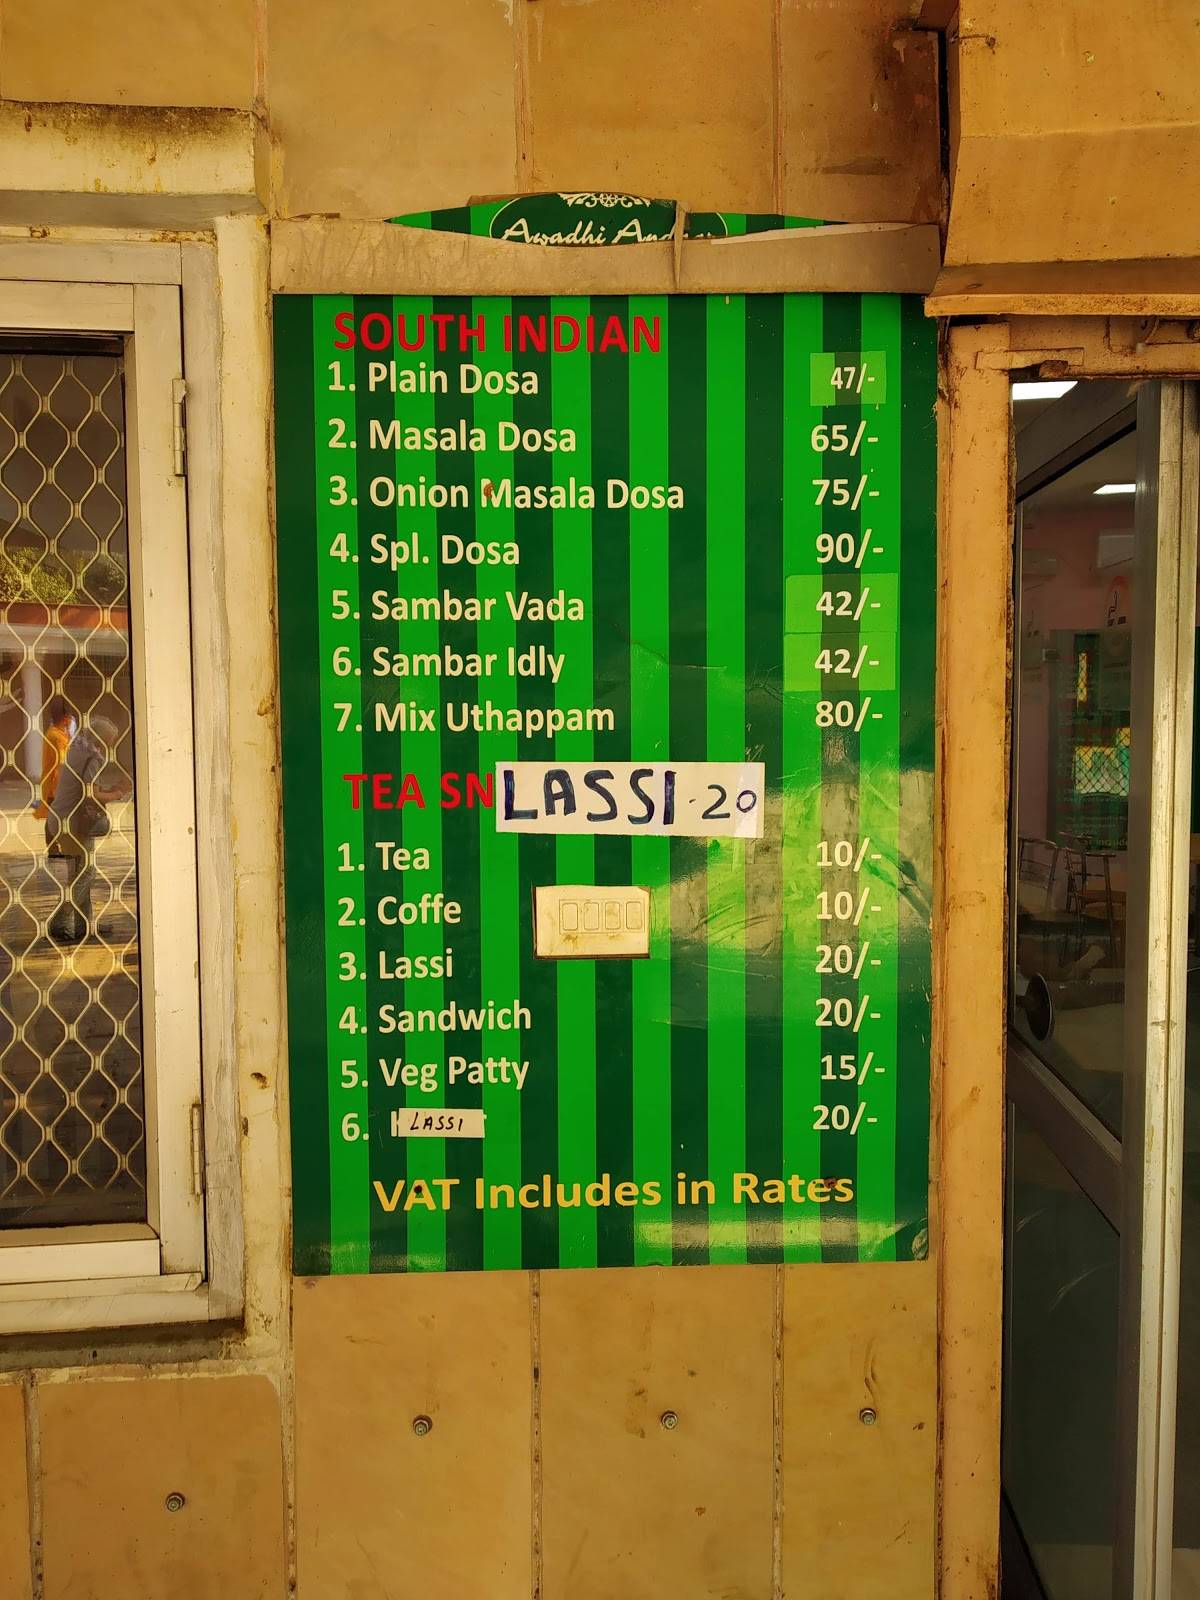 Awadhi
SOUTH INDIAN
1. Plain Dosa 47/-
2. Masala Dosa 65/-
3. Onion Masala Dosa 75/-
4. Spl. Dosa 90/-
5. Sambar Vada 42/-
6. Sambar Idly 42/-
7. Mix Uthappam 80/-
TEA SN LASSI - 20
1. Tea 10/-
2. Coffe 10/-
3. Lassi 20/-
4. Sandwich 20/-
5. Veg Patty 15/-
6. LASSI 20/-
VAT Includes in Rates